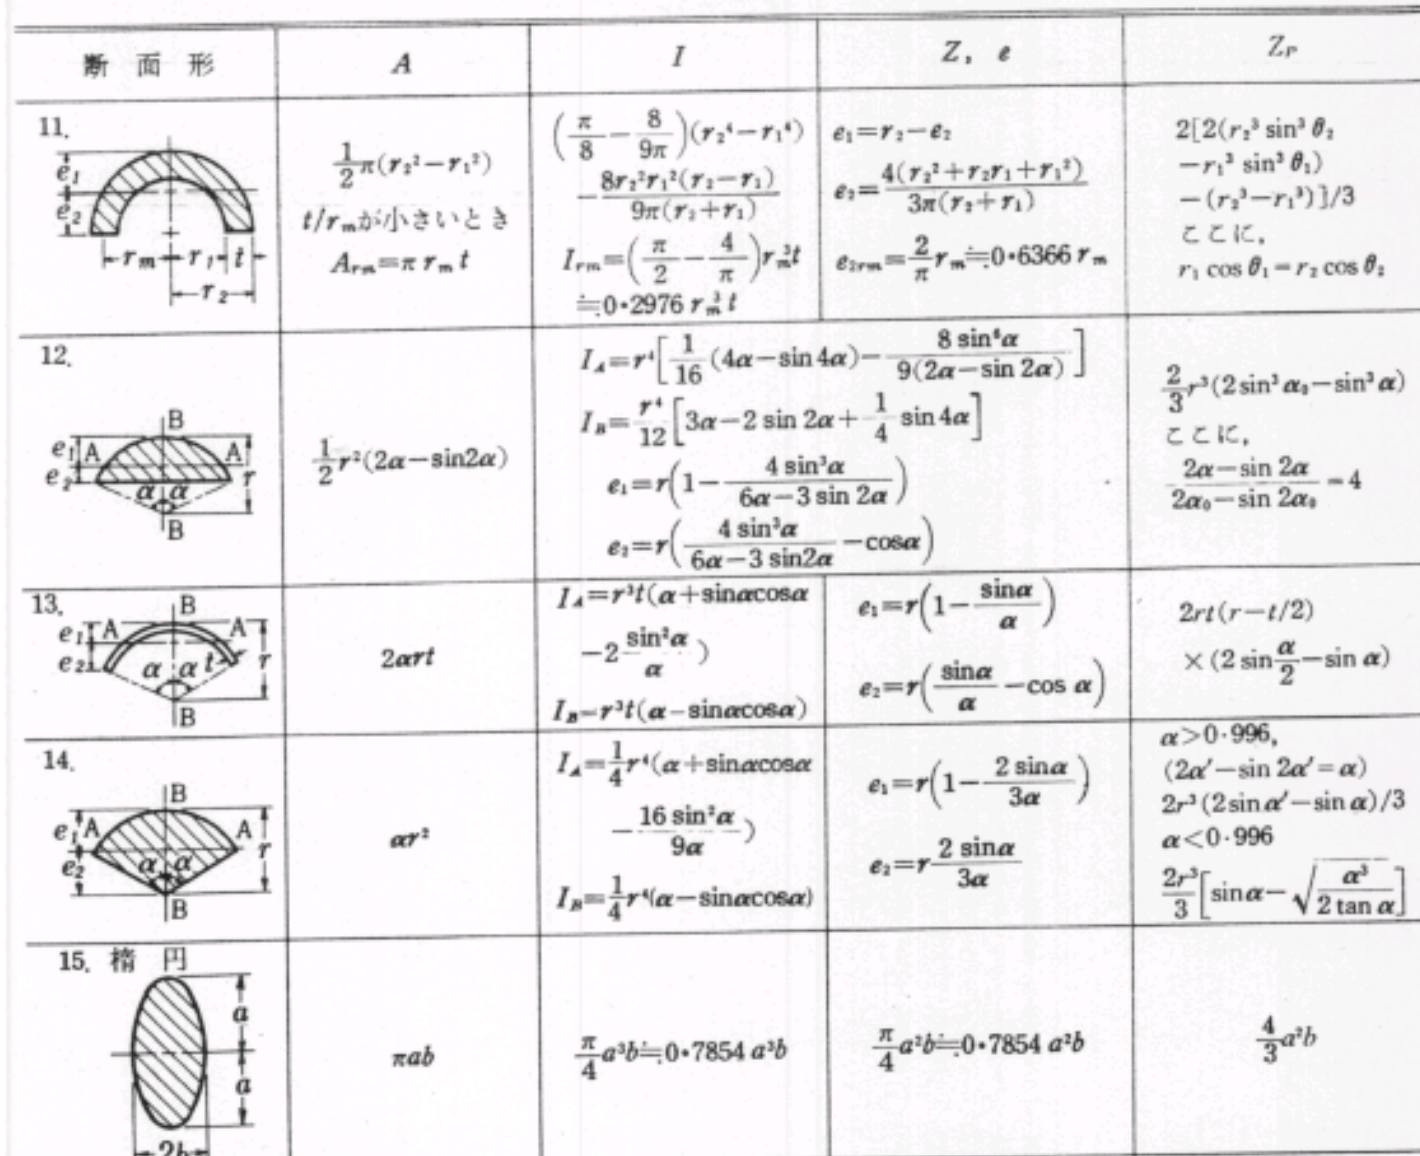 断面形 A I Z, e Z_P
11.
e₁
e₂
r_m r₁ t
r₂
1/2 π(r₂²−r₁²)
t/r_mが小さいとき
A_rm=π r_m t
(π/8−8/9π)(r₂⁴−r₁⁴)
−8r₂²r₁²(r₂−r₁)/9π(r₂+r₁)
I_rm=(π/2−4/π)r_m³t
≒0·2976 r_m³ t
e₁=r₂−e₂
e₂=4(r₂²+r₂r₁+r₁²)/3π(r₂+r₁)
e₂rm=2/π r_m≒0·6366 r_m
2[2(r₂³ sin³ θ₂
−r₁³ sin³ θ₁)
−(r₂³−r₁³)]/3
ここに,
r₁ cos θ₁=r₂ cos θ₂
12.
B
e₁ A A
e₂ α α r
B
1/2 r²(2α−sin2α)
I_A=r⁴[1/16 (4α−sin 4α)−8 sin⁶α/9(2α−sin 2α)]
I_B=r⁴/12[3α−2 sin 2α+1/4 sin 4α]
e₁=r(1−4 sin³α/6α−3 sin 2α)
e₂=r(4 sin³α/6α−3 sin2α−cosα)
2/3 r³(2 sin³ α₀−sin³ α)
ここに,
2α−sin 2α/2α₀−sin 2α₀=4
13.
B
e₁ A A
e₂ α α t r
B
2αrt
I_A=r³t(α+sinαcosα
−2 sin²α/α)
I_B=r³t(α−sinαcosα)
e₁=r(1−sinα/α)
e₂=r(sinα/α−cos α)
2rt(r−t/2)
×(2 sin α/2−sin α)
14.
B
e₁ A A
e₂ α α r
B
αr²
I_A=1/4 r⁴(α+sinαcosα
−16 sin²α/9α)
I_B=1/4 r⁴(α−sinαcosα)
e₁=r(1−2 sinα/3α)
e₂=r 2 sinα/3α
α>0·996,
(2α′−sin 2α′=α)
2r³(2sin α′−sin α)/3
α<0·996
2r³/3[sinα−√(α³/2 tan α)]
15.楕 円
a
a
2b
πab
π/4 a³b≒0·7854 a³b
π/4 a²b≒0·7854 a²b
4/3 a²b